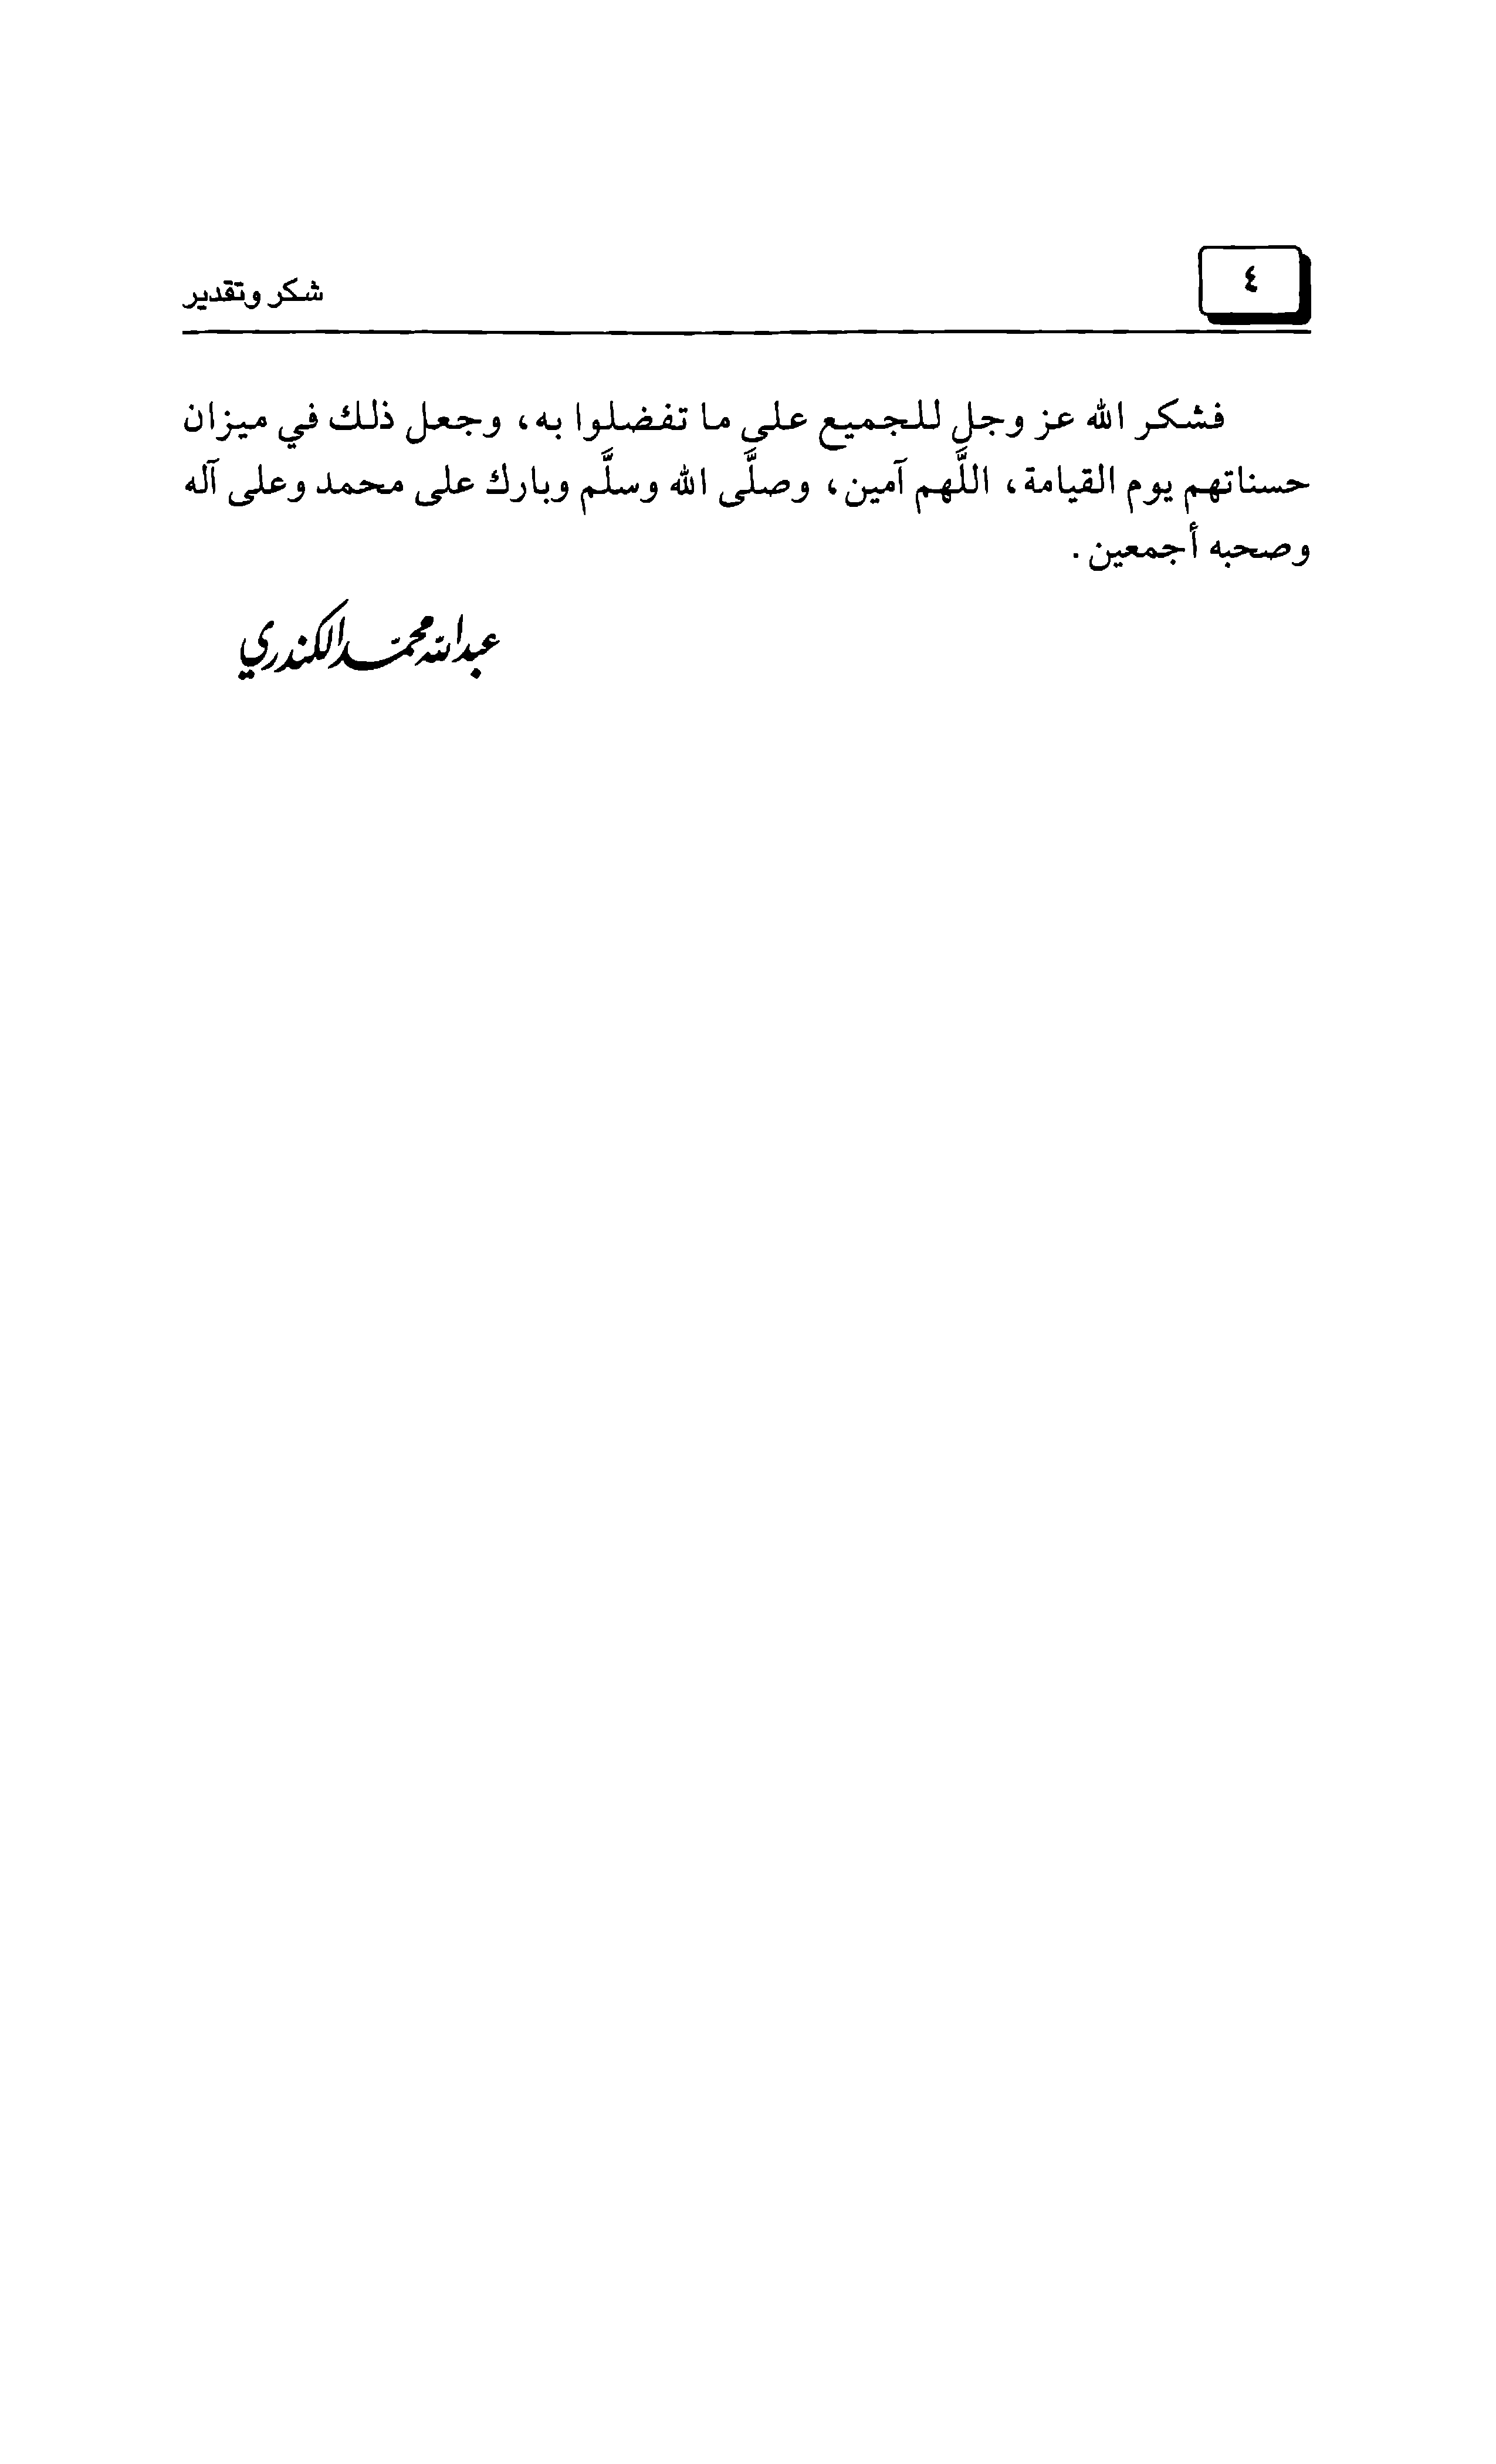 ٤
شكر وتقدير
فشكر الله عز وجل للجميع على ما تفضلوا به، وجعل ذلك في ميزان
حسناتهم يوم القيامة، اللَّهم آمين، وصلَّى الله وسلَّم وبارك على محمد وعلى آله
وصحبه أجمعين.
عبدالله محمد الكندري